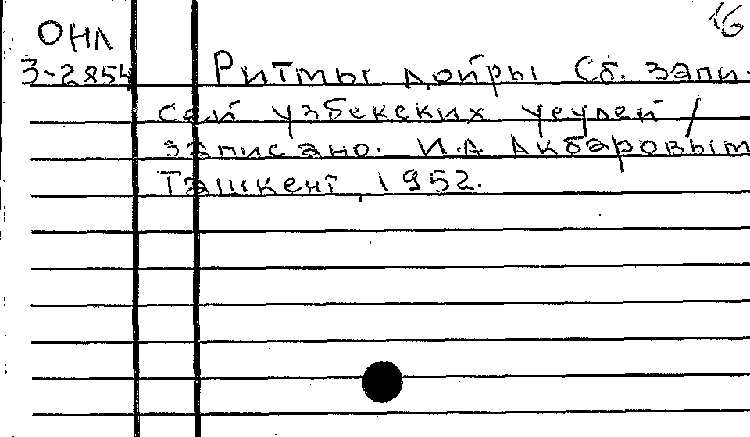 16
ОНЛ
З-2854 Ритмы дойры Сб. запи-
сей узбекских усулей /
записано. И.А Акбаровым
Ташкент, 1952.